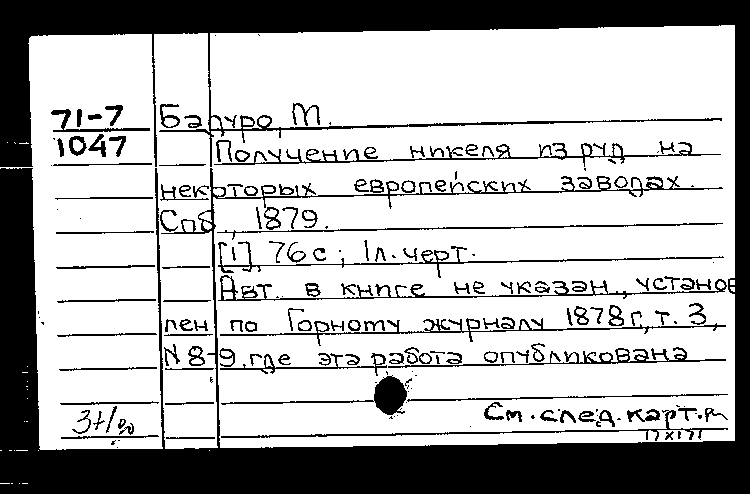 71-7 Бадуро, М.
1047 Получение никеля из руд на
некоторых европейских заводах.
Спб., 1879.
[1], 76 с; 1л. черт.
Авт. в книге не указан, установ
лен по Горному журналу 1878 г, т. 3,
N 8-9, где эта работа опубликована
См. след. карт.
17 XI 71